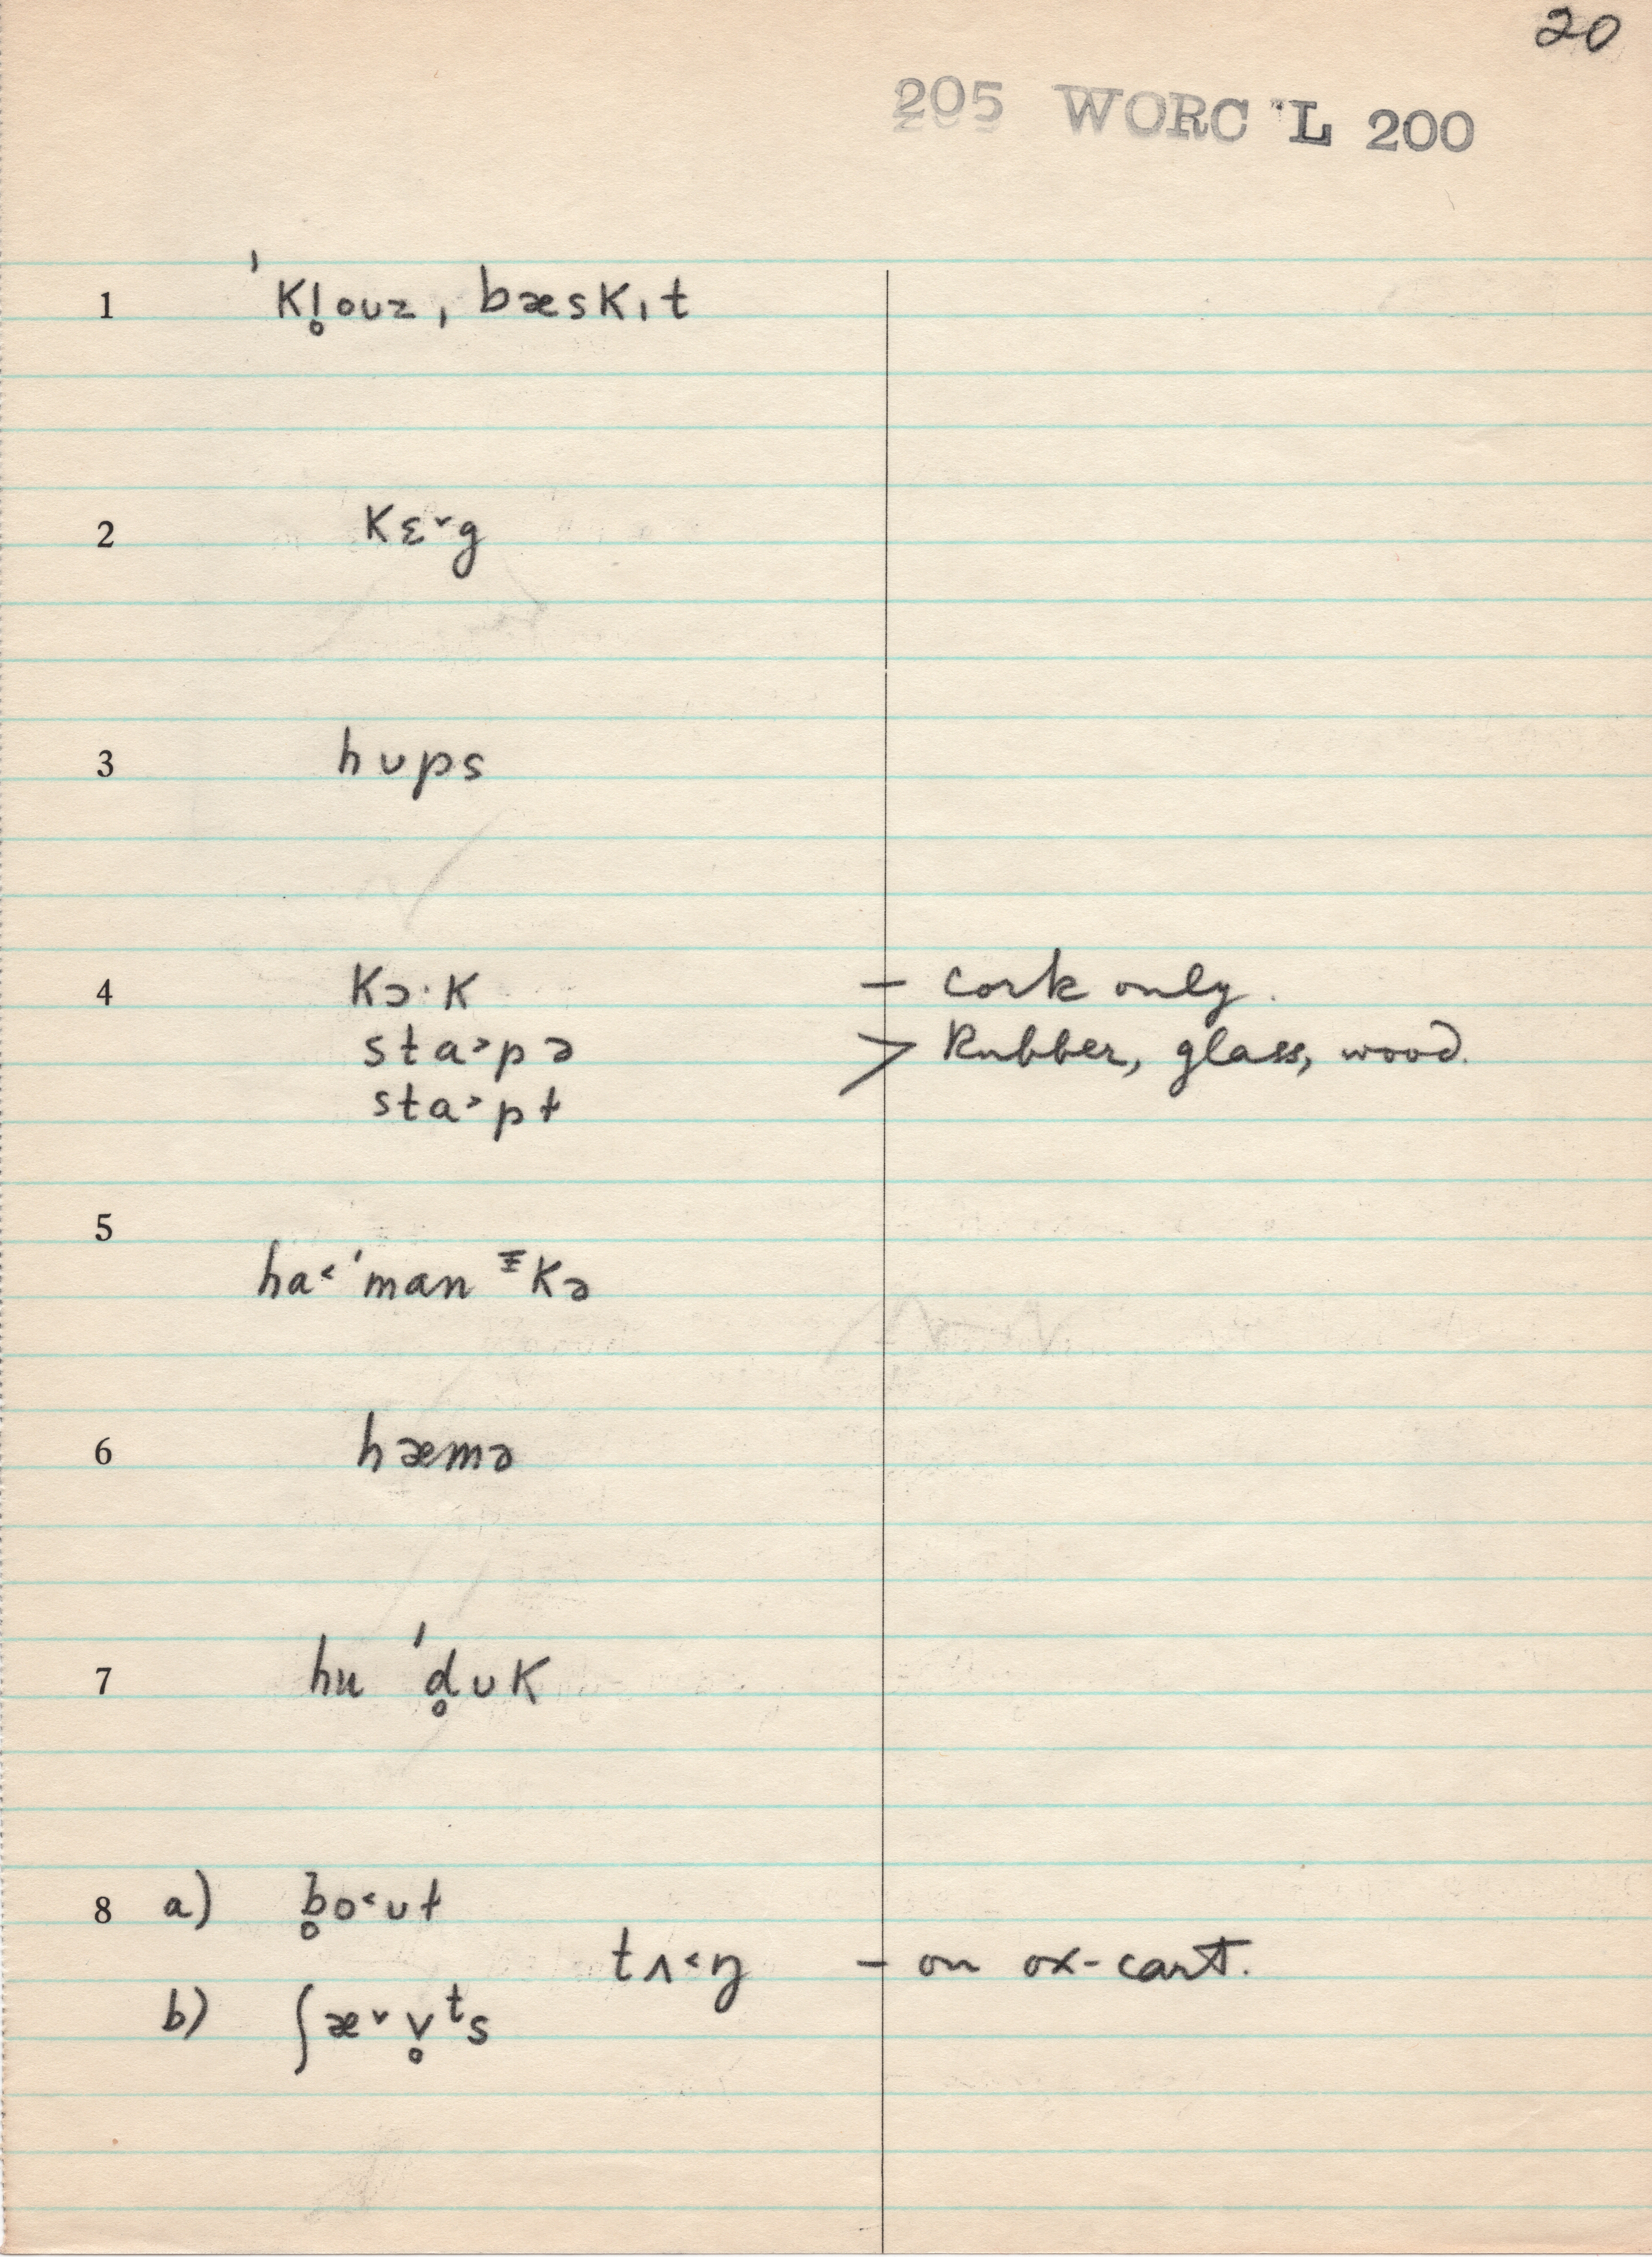 20
205 WORC L 200
1 ˈkl̥oʊz, bæskɪt
2 kɛ˅g
3 hʊps
4 kɔ·k – cork only.
sta˃pə > Rubber, glass, wood.
sta˃pɫ
5 ha˂ˈmanᵻkə
6 hæmə
7 hu ˈd̥ʊk
8 a) b̥o˂ʊɫ
tʌ˂ŋ – on ox-cart.
b) ʃæ˅v̥ᵗs